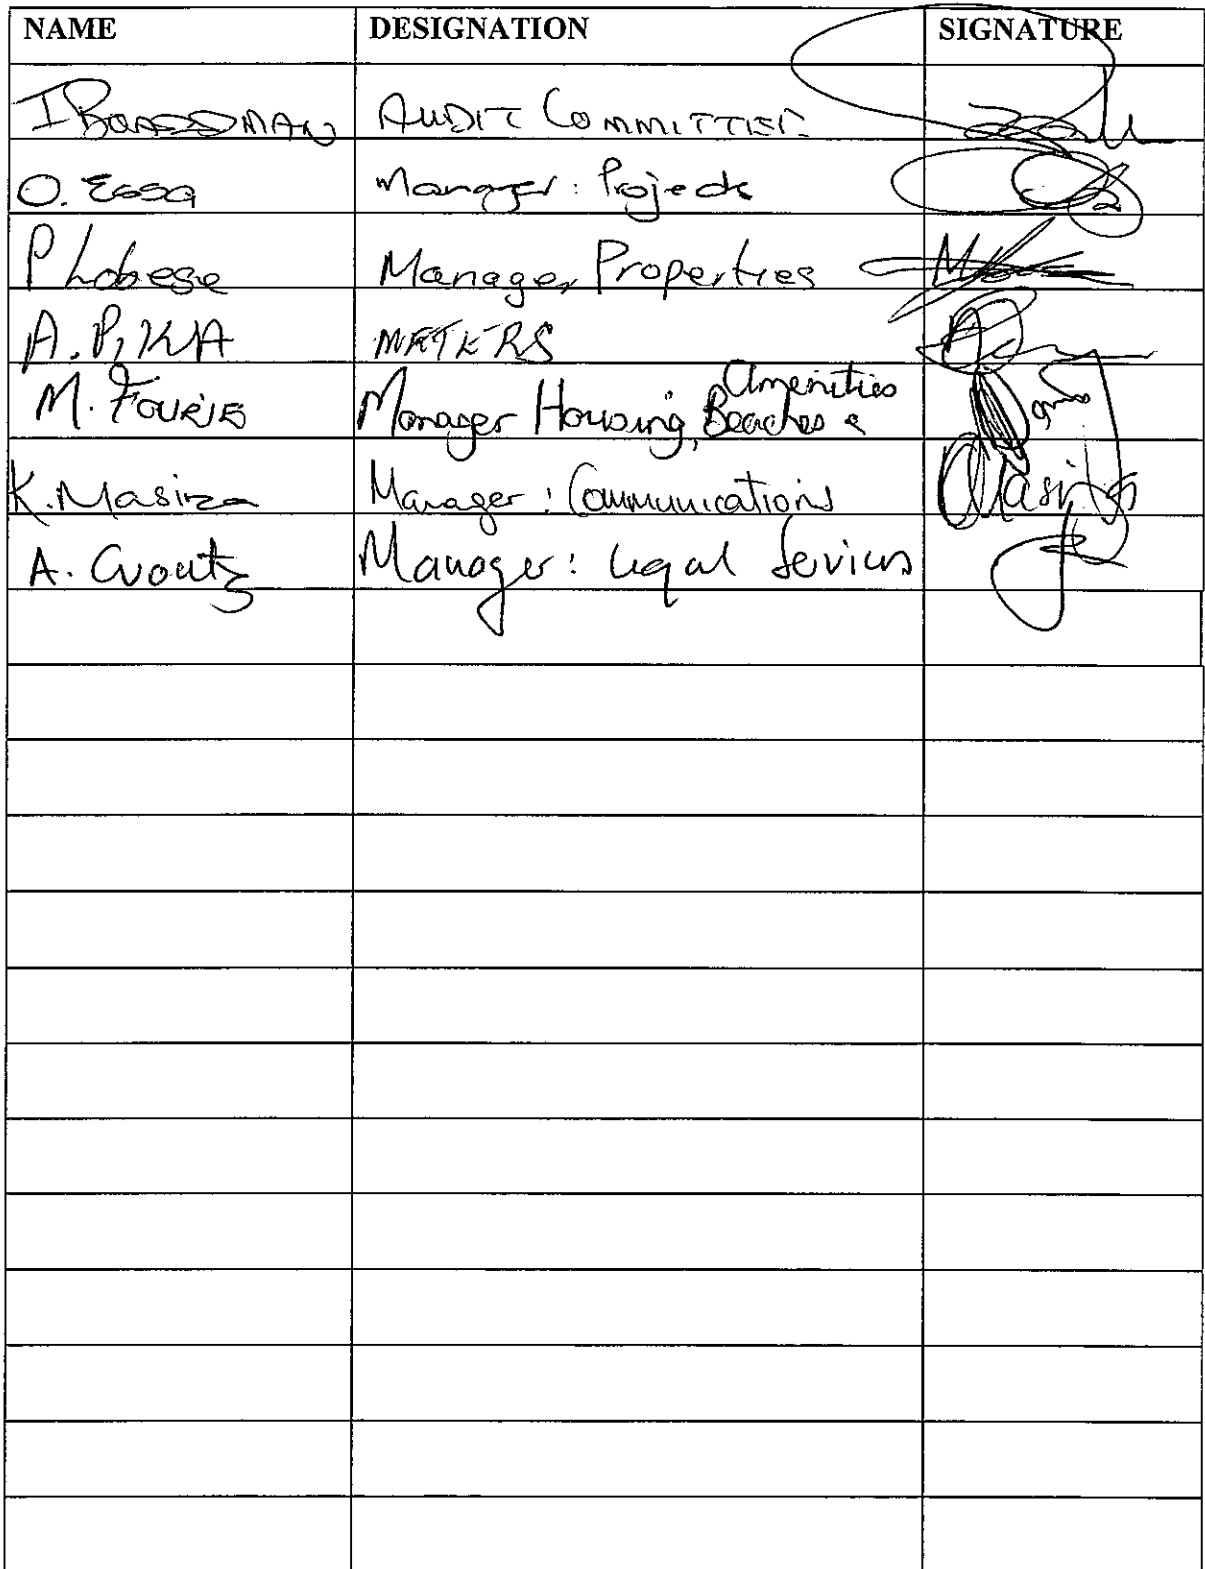 NAME DESIGNATION SIGNATURE
I BOARDMAN AUDIT COMMITTEE
O. Essa Manager: Projects
P Lobese Manager Properties
A. PIKA METERS
M. FOURIE Manager Housing, Beaches & Amenities
K. Masiza Manager: Communications Masiza
A. Manager: Legal Services